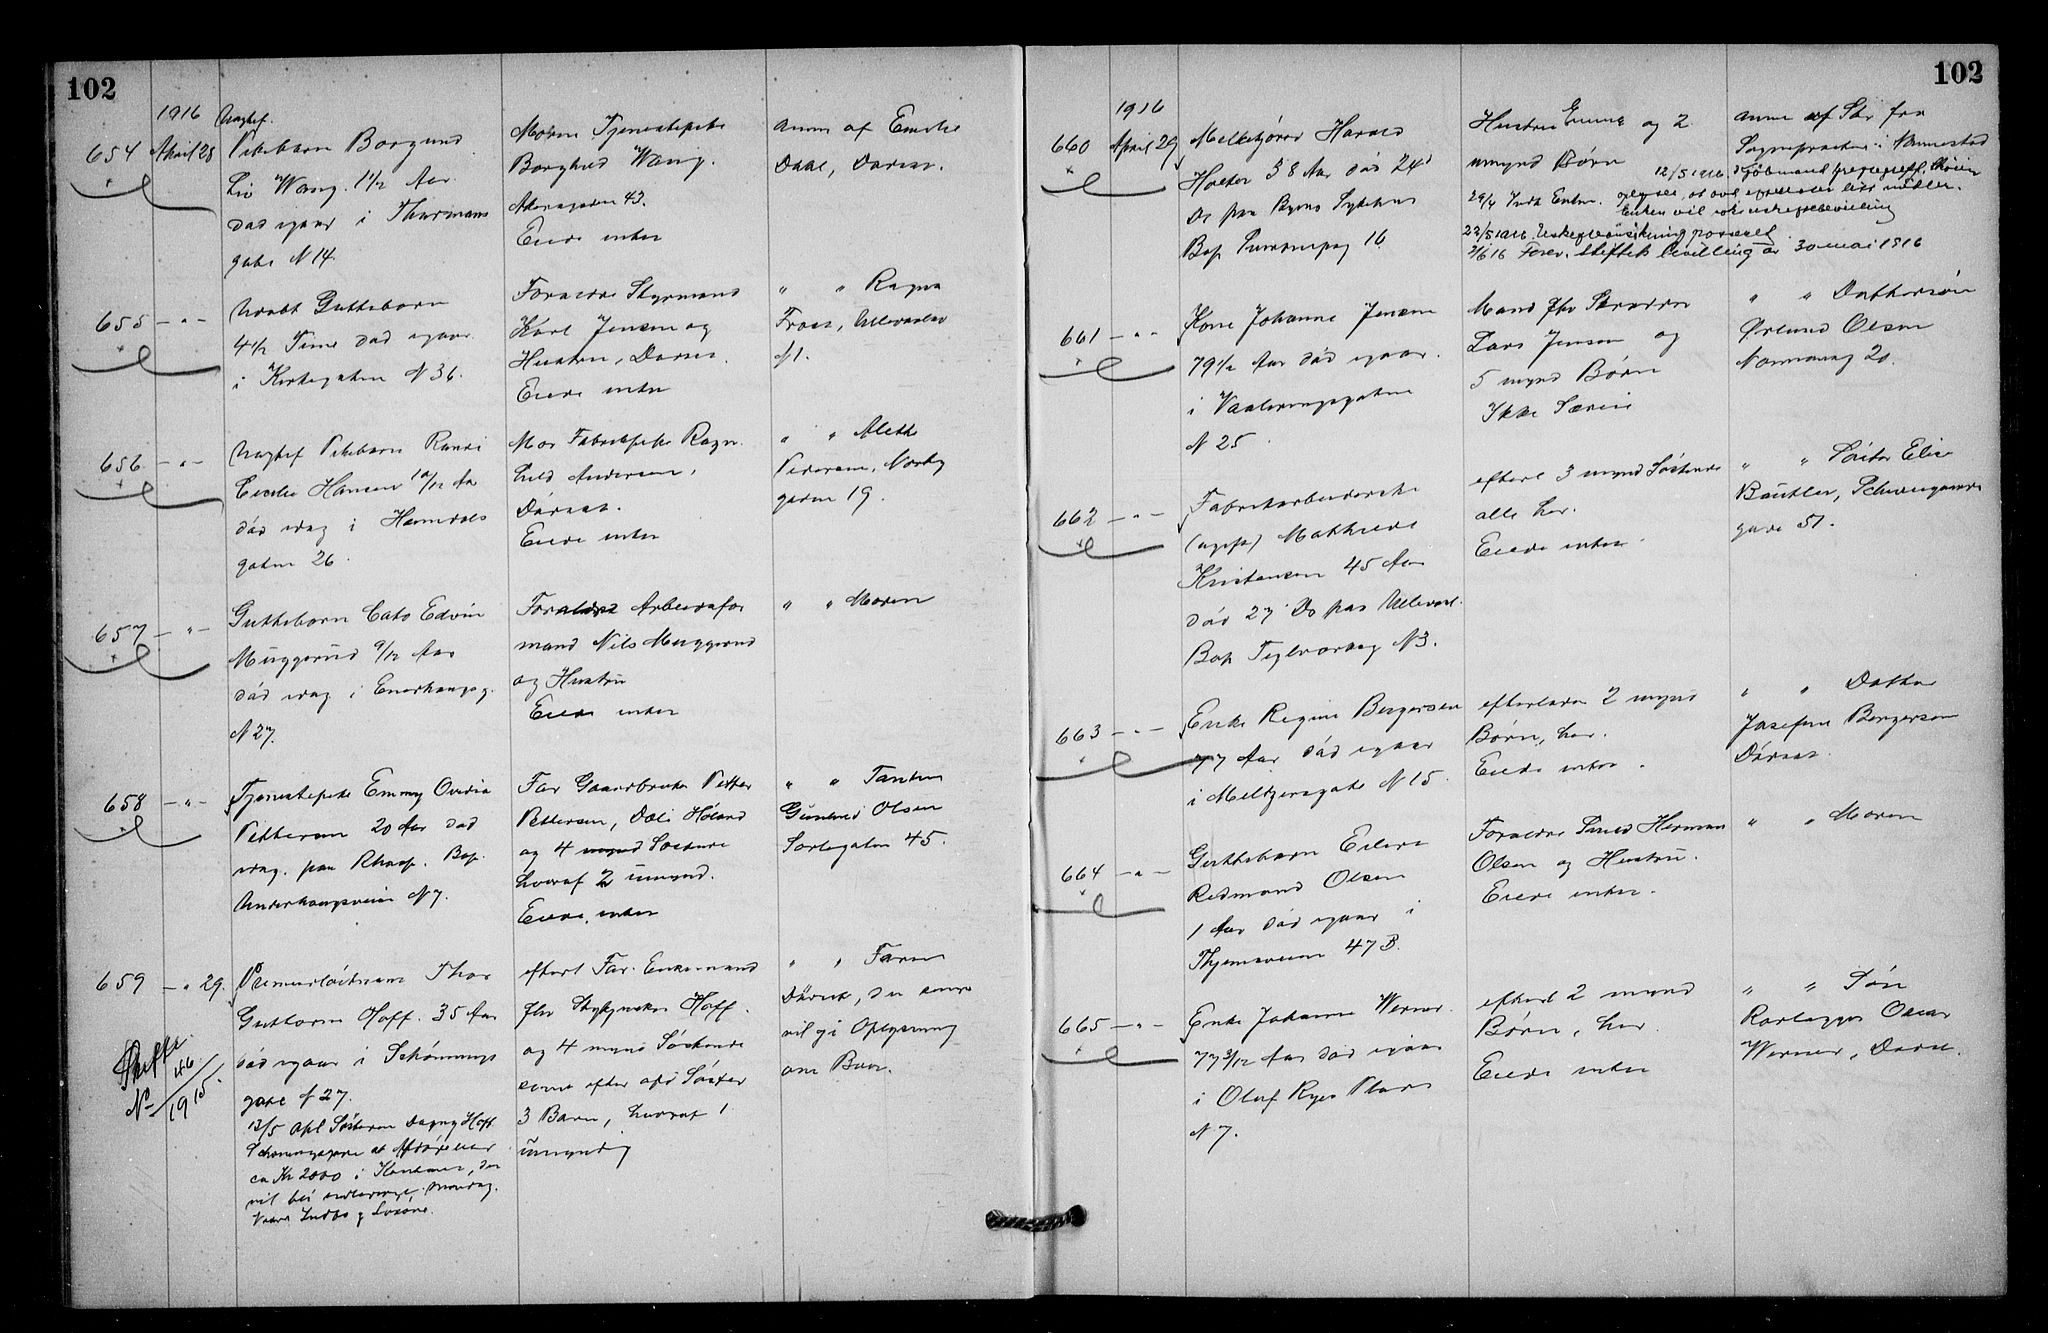 102
1916
654 April 28
Uægtef.
Pikebarn Borgund
Liv Wang. 1 1/2 Aar
død igaar i Thurmans
gate N 14.
Moren Tjenestepike
Borghild Wang.
Akersgaten 43.
Eiede intet
Anm af Emilie
Dahl, Dødsst.
655 — " —
Udøbt Guttebarn
4 1/2 Time død igaar
i Kirkegaten N 36.
Forældre Styrmand
Karl Jensen og
Hustru, Dødsst.
Eiede intet
" " Ragna
Ullevaal
656 — " —
Uægtef Pikebarn Randi
Hansen 10/12 Aar
død idag i Hammersdals
gaten 26.
Mor Fabrikpike Ragn
hild Andersen,
Dødsst.
Eiede intet
" " Aleth
Pedersen, Norby
gaten 19.
657 — " —
Guttebarn Cato Edvin
Muggerud 9/12 Aar
død idag i Enerhaugsg.
N 27.
Forældre Arbeidsfor
mand Nils Muggerud
og Hustru
Eiede intet
" " Moren
658 — " —
Tjenestepike Emmy Ovidia
Pettersen 20 Aar død
idag paa Rhosp. Bop.
N 7.
Far Gaardbruker Petter
Pettersen, Høland
og 4 mynd Søskende
hvoraf 2 umynd.
Eiede intet
" " Tanten
Gunhild Olsen
Sorlegaten 45.
659 — " 29.
Skifte
No 46/1915.
Premierløitnant Thor
Guttorm Hoff. 35 Aar
død igaar i Schønnings
gate N 27.
13/5 opl Søsteren Dagny Hoff
Schøningsgate at Afdøde eier
ca Kr 2000 i Kontanter, der
vil bli
efterl Far. Enkemand
fhv Stykjunker Hoff.
og 4 mynd Søskende
samt efter afd Søster
3 Barn, hvoraf 1
umyndig
" " Faren
Dødsst, der senere
vil gi Oplysning
om Boet.
102
1916
660 April 29
Melkekjører Harald
Holter 38 Aar død 24'
Ds paa Byens Sykehus
Bop 16.
Hustru Emma og 2
umynd Børn
29/4 Indk Enken.
12/5 1916
oplyser, at
Enken vil søke uskiftebevilling
22/5 1916. Uskifteansøkning passeret
2/6 16 Forev. skiftek bevilling av 30 mai 1916
Anm af Skr fra
Sogneprästen i Nannestad
661 — " —
Kone Johanne Jensen
79 1/2 Aar død igaar.
i Vaalerengsgaten
N 25
Mand fhv Skrædder
Lars Jensen og
5 mynd Børn
Ikke Særeie
" " Dattersøn
Ørlund Olsen
Normannsg 20.
662 — " —
Fabrikarbeiderske
(ugift) Mathilde
Kristensen 45 Aar
død 27' Ds paa Ulleval.
Bop Teglverksg N 3.
efterl 3 mynd Søskende
alle her.
Eiede intet
" " Søster Elise
Schweigaards
gate 51.
663 — " —
Enke Regine Bergersen
77 Aar død igaar
i Meltzersgate N 15
efterlader 2 mynd
Børn, her.
Eiede intet
" " Datter
Josefine Bergersen
Dødsst
664 — " —
Guttebarn Eilert
Redmond Olsen
1 Aar død igaar i
47 B.
Forældre Smed Herman
Olsen og Hustru.
Eiede intet.
" " Moren
665 — " —
Enke Johanne Werner
77 3/12 Aar død igaar
i Oluf Ryes Plads
N 7.
efterl 2 mynd
Børn, her.
Eiede intet
" " Søn
Rørlegger Oscar
Werner, Dødsst.